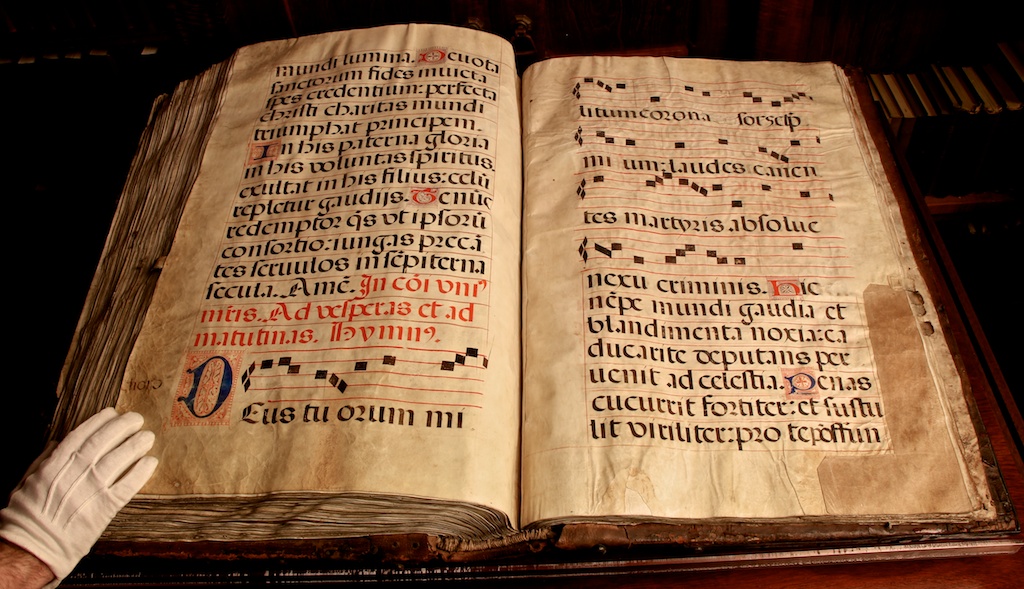 mundi lumina. Devota
sanctorum fides invicta
spes credentium: perfecta
christi charitas mundi
triumphat principem.
In his paterna gloria
in his voluntas spiritus.
exultat in his filius: celũ
repletur gaudijs. Te nũc
redemptor q̃s vt ipsorũ
consortio: iungas precã
tes servulos in sẽpiterna
secula. Amẽ. In cõi vniꝰ
mr̃is. Ad vesperas et ad
matutinas. Hymnꝰ.
Deus tu orum mi
litum corona sors et p̃
mi um: laudes canen
tes martyris absolve
nexu criminis. Hic
nẽpe mundi gaudia et
blandimenta noxia: ca
duca rite deputans per
venit ad celestia. Penas
cucurrit fortiter: et sustu
lit viriliter: pro te effun